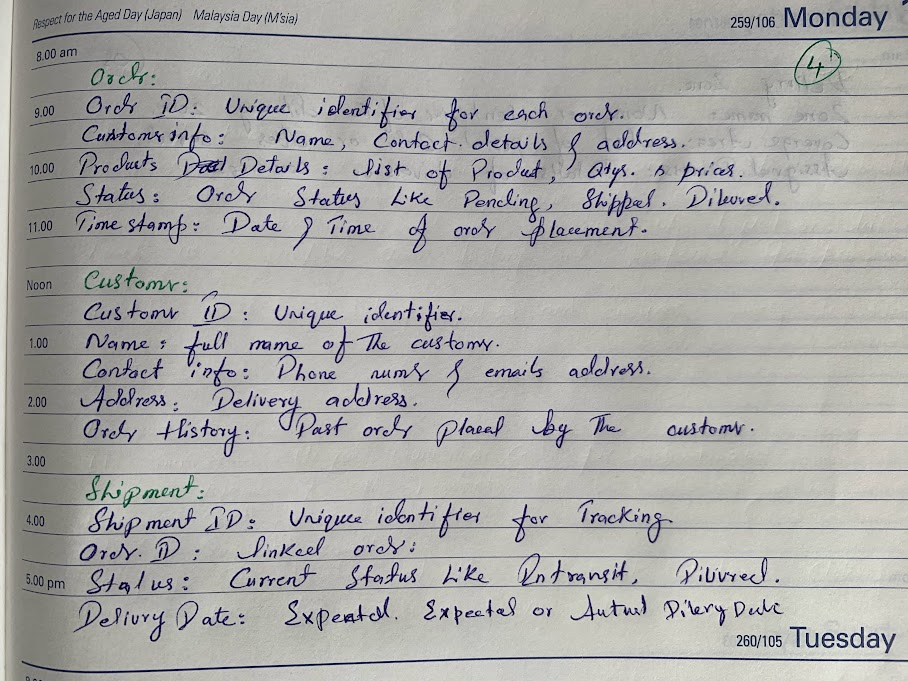 Respect for the Aged Day (Japan) Malaysia Day (M'sia)
259/106 Monday
8.00 am
4
Order:
9.00 Order ID: Unique identifier for each order.
Customer info: Name, Contact details & address.
10.00 Products Details: List of Product, Qtys. & prices.
Status: Order Status Like Pending, Shipped. Dilivred.
11.00 Time stamp: Date & Time of order placement.
Noon Customer:
Customer ID: Unique identifier.
1.00 Name: full name of The customer.
Contact info: Phone numer & emails address.
2.00 Address: Delivery address.
Order History: Past order placed by The customer.
3.00
Shipment:
4.00 Shipment ID: Unique identifier for Tracking
Order. ID: linked order:
5.00 pm Status: Current Status Like Intransit, Dilivred.
Delivry Date: Expected. Expected or Autual Dilery Date
260/105 Tuesday